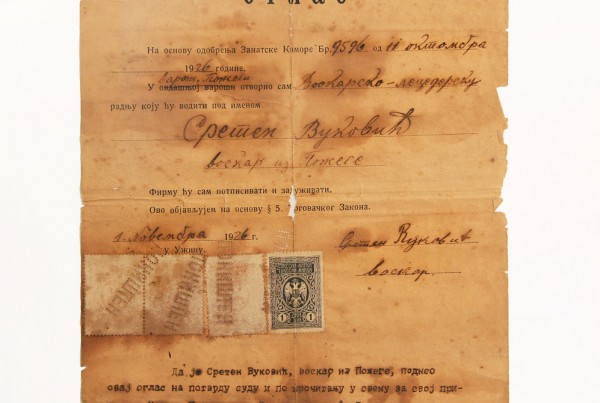 ОГЛАС
На основу одобрења Занатске Коморе Бр. 9596 од 11 октомбра
1926 године.
варош. Пожеги
У овдашњој вароши отворио сам Воскарско-лецедерску
радњу коју ћу водити под именом
Сретен Вуковић
воскар из Пожеге
Фирму ћу сам потписивати и задуживати.
Ово објављујем на основу § 5. Трговачког Закона.
1. Новембра 1926 г.
у Ужицу.
Сретен Вуковић
воскар.
ПОНИШТЕН
ПОНИШТЕН
ПОНИШТЕН
1 1
Да је Сретен Вуковић, воскар из Пожеге, поднео
овај оглас на потврду суду и по прочитању у свему за свој при-